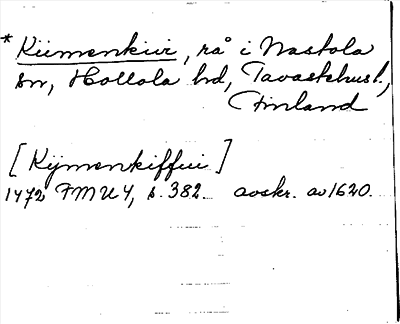 * Kiimenkivi, rå i Nastola
sn, Hollola hd, Tavastehus l.,
Finland
[Kijmenkiffui]
1472 FMU 4, s. 382. avskr. av 1620.